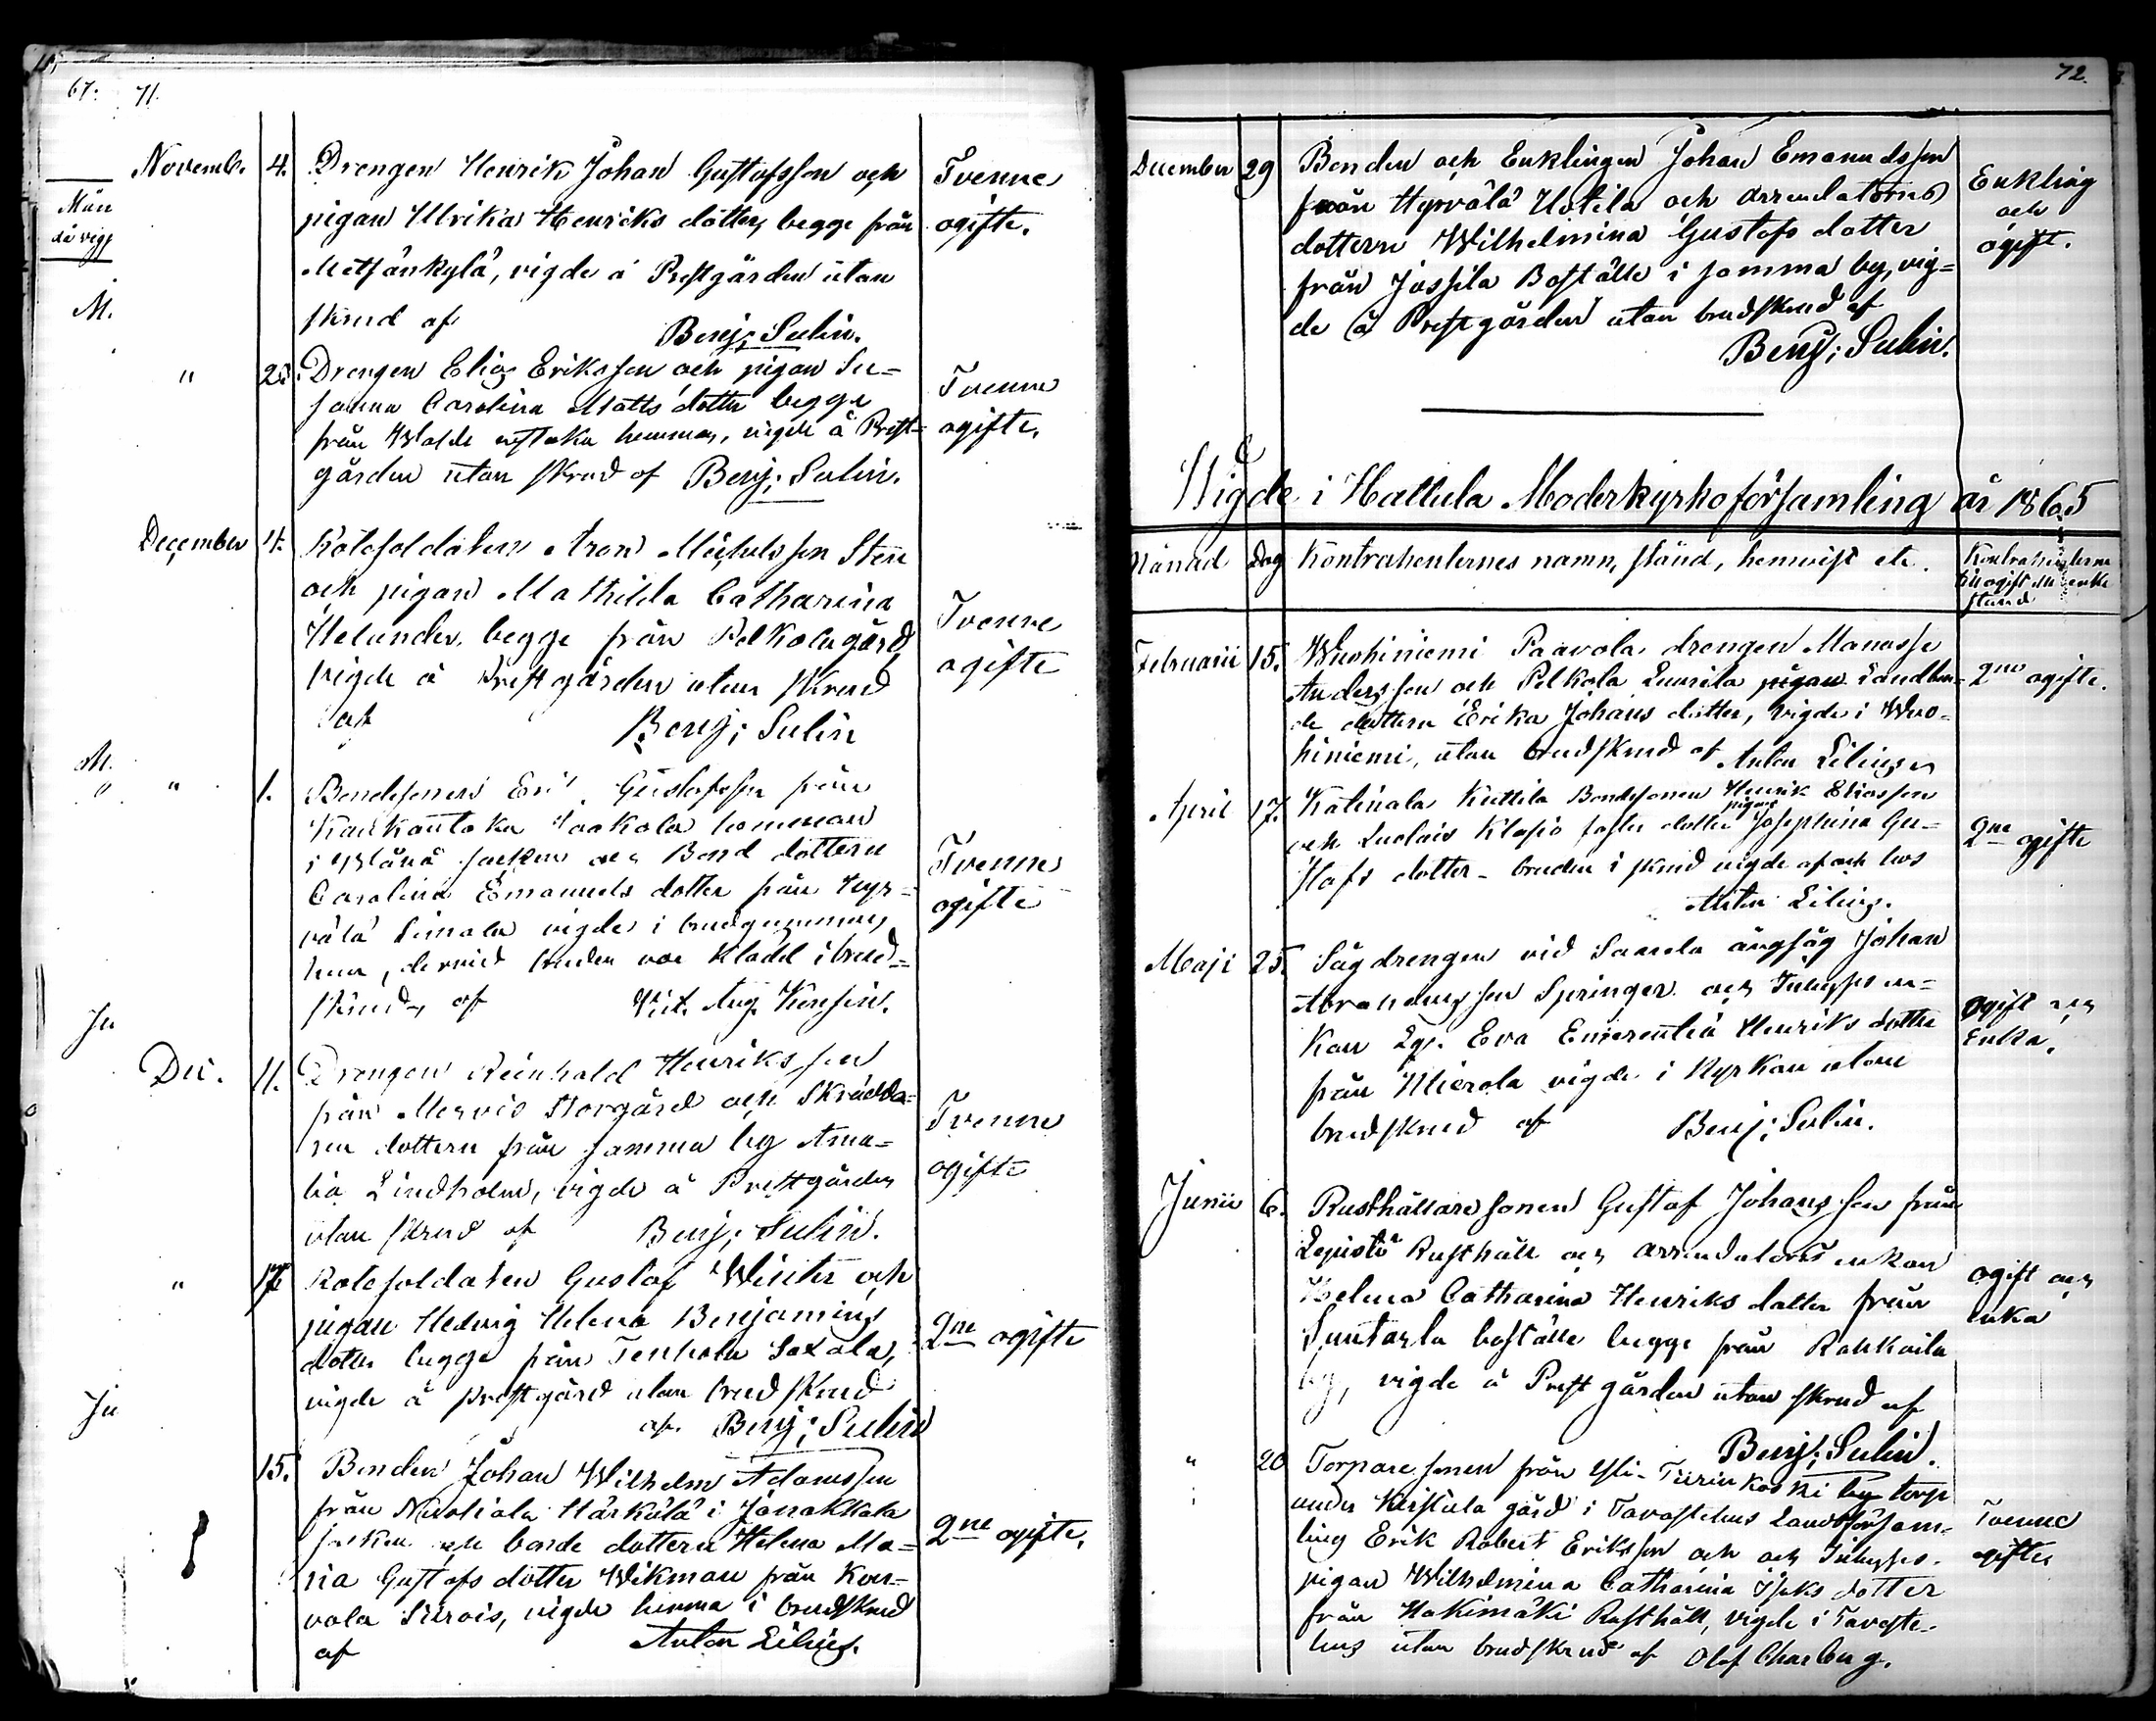 67. 71.
Novemb. 4. Drengen Henrik Johan Gustafsson och Tvenne
pigan Ulrika Henriks dotter, begge från ogifte.
Metsänkylä, vigde å Prestgården utan
skrud af
Benj; Sulin.
" Drengen Elias Eriksson och pigan Su=
sanna Carolina Matts dotter begge Tvenne
från hemman, vigde å Prest= ogifte.
gården utan skrud af Benj; Sulin.
December 4. Rotesoldaten Aron Michelsson Sten
och pigan Mathilda Catharina
Helander, begge från Pelkola gård, Tvenne
vigde å Prestgården utan skrud ogifte
af Benj; Sulin
" 1. Bondesonen Gustafsson från
hemman
i socken och Bond dottern
Carolina Emanuels dotter från Hyr= Tvenne
välä vigde i brudgummens ogifte
hem, dervid bruden var klädd i brud=
skrud, af Aug.
Dec. 11. Drengen Reinhold Henriksson
från Mervis Storgård och Skrädda=
re dottern från samma by Ama= Tvenne
lia Lindholm, vigde å Prestgården ogifte
utan skrud af Benj; Sulin.
" Rotesoldaten Gustaf Winter och
pigan Hedvig Helena Benjamins
dotter begge från Tenhola Saxala, 2ne ogifte
vigde å prestgård utan brudskrud
af. Benj; Sulin
15. Bonden Johan Wilhelm Adamsson
från Härkälä i Janakkala
socken och bonde dottern Helena Ma= 2ne ogifte.
ria Gustafs dotter Wikman från
vola Siirois, vigde hemma i brudskrud
af Anton Lilius.
72.
December 29 Bonden och Enklingen Johan Emanuelsson Enkling
från Hyrvälä Uotila och Arrendatorns och
dottern Wilhelmina Gustafs dotter ogift.
från Jossila Boställe i samma by, vig=
de å Prestgården utan brudskrud af
Benj; Sulin.
Wigde i Hattula Moderkyrkoförsamling år 1865
Månad Dag Kontrahenternes namn, stånd, hemvist etc. Kontrahenterne
stånd
Februarii 15. Wuohiniemi Paavola drengen Manasse
Andersson och Pelkola pigan Landbon= 2ne ogifte.
de dottern Erika Johans dotter, vigde i Wuo=
hiniemi, utan brudskrud af Anton Lilius
April 17. Katinala Kuttila Bondesonen Henrik Eliasson
och Klapio dotter pigan Josephina Gu= 2ne ogifte
stafs dotter - bruden i skrud vigde af och hos
Anton Lilius.
Maji 25. Sågdrengen vid Saarela ångsåg Johan
Abrahamsson Springer och Inhysesen= Ogift och
kan Eva Emerentia Henriks dotter Enka.
från Mierola vigde i Kyrkan utan
brudskrud af Benj; Sulin.
Junii 6. Rusthållare sonen Gustaf Johansson från
Lepistö Rusthåll och arrendators enkan ogift och
Helena Catharina Henriks dotter från enka
boställe begge från Rahkoila
by, vigde å Prestgården utan skrud af
Benj; Sulin.
" 20 Torpare sonen från Yli- by torp
under Kirstula gård i Tavastehus Landtförsam= Tvenne
ling Erik Robert Eriksson och och Inhyses ogifte
pigan Wilhelmina Catharina Isaks dotter
från Hakimäki Rusthåll, vigde i Tavaste-
hus utan brudskrud af Olof Charberg.